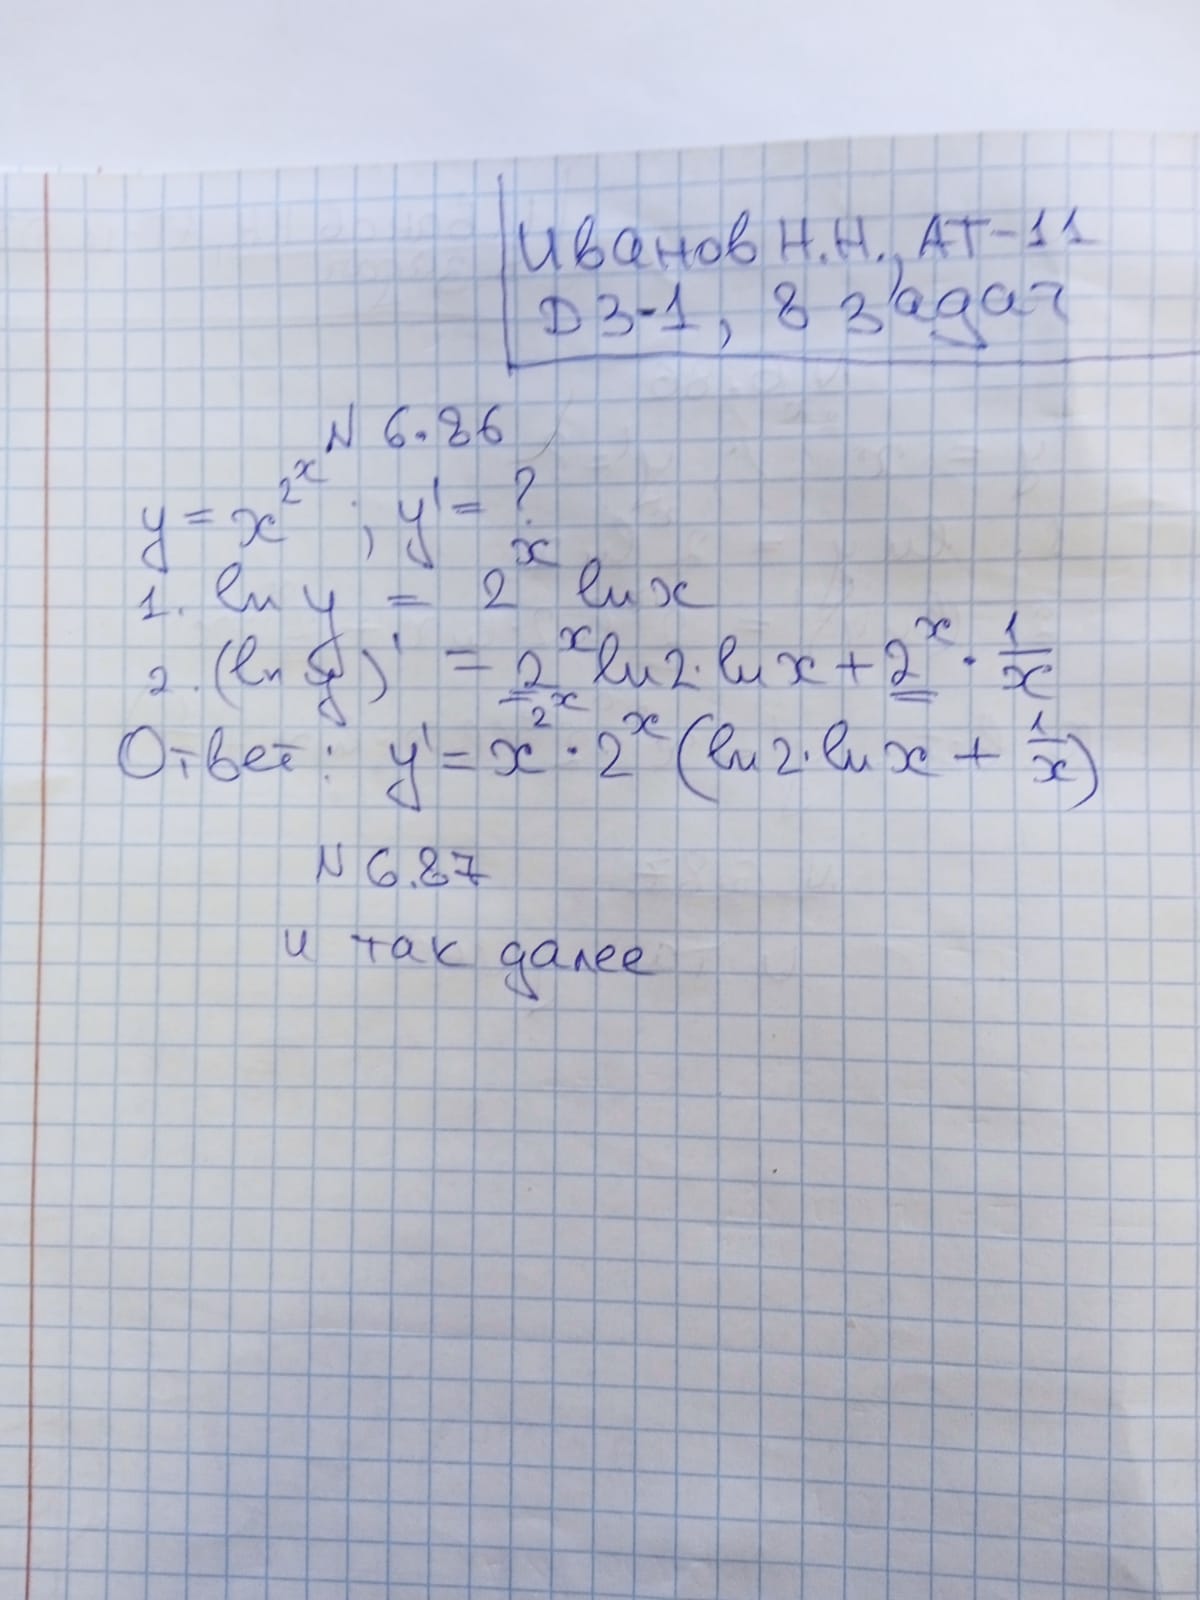 Иванов Н.Н., АТ-11
ДЗ-1, 8 задач
N 6.86
y = x^{2^x} ; y' = ?
1. ln y = 2^x ln x
2. (ln y)' = 2^x ln 2 · ln x + 2^x · 1/x
Ответ: y' = x^{2^x} · 2^x (ln 2 · ln x + 1/x)
N 6.87
и так далее